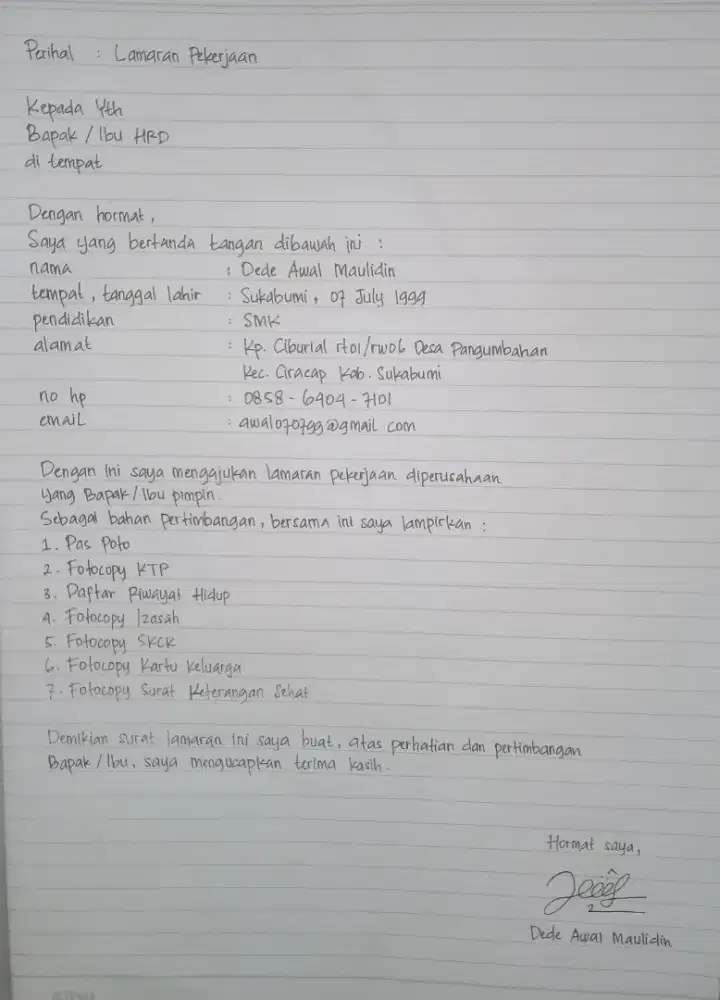 Perihal : Lamaran Pekerjaan
Kepada Yth
Bapak / Ibu HRD
di tempat
Dengan hormat,
Saya yang bertanda tangan dibawah ini :
nama : Dede Awal Maulidin
tempat, tanggal lahir : Sukabumi, 07 July 1999
pendidikan : SMK
alamat : Kp. Ciburial rt01/rw06 Desa Pangumbahan
Kec. Ciracap Kab. Sukabumi
no hp : 0858 - 6904 - 7101
email : awal070799@gmail com
Dengan ini saya mengajukan lamaran pekerjaan diperusahaan
yang Bapak / Ibu pimpin.
Sebagai bahan pertimbangan, bersama ini saya lampirkan :
1. Pas Poto
2. Fotocopy KTP
3. Daftar Riwayat Hidup
4. Fotocopy Izasah
5. Fotocopy SKCK
6. Fotocopy Kartu Keluarga
7. Fotocopy Surat Keterangan Sehat
Demikian surat lamaran ini saya buat, atas perhatian dan pertimbangan
Bapak / Ibu, saya mengucapkan terima kasih.
Hormat saya,
Dede Awal Maulidin